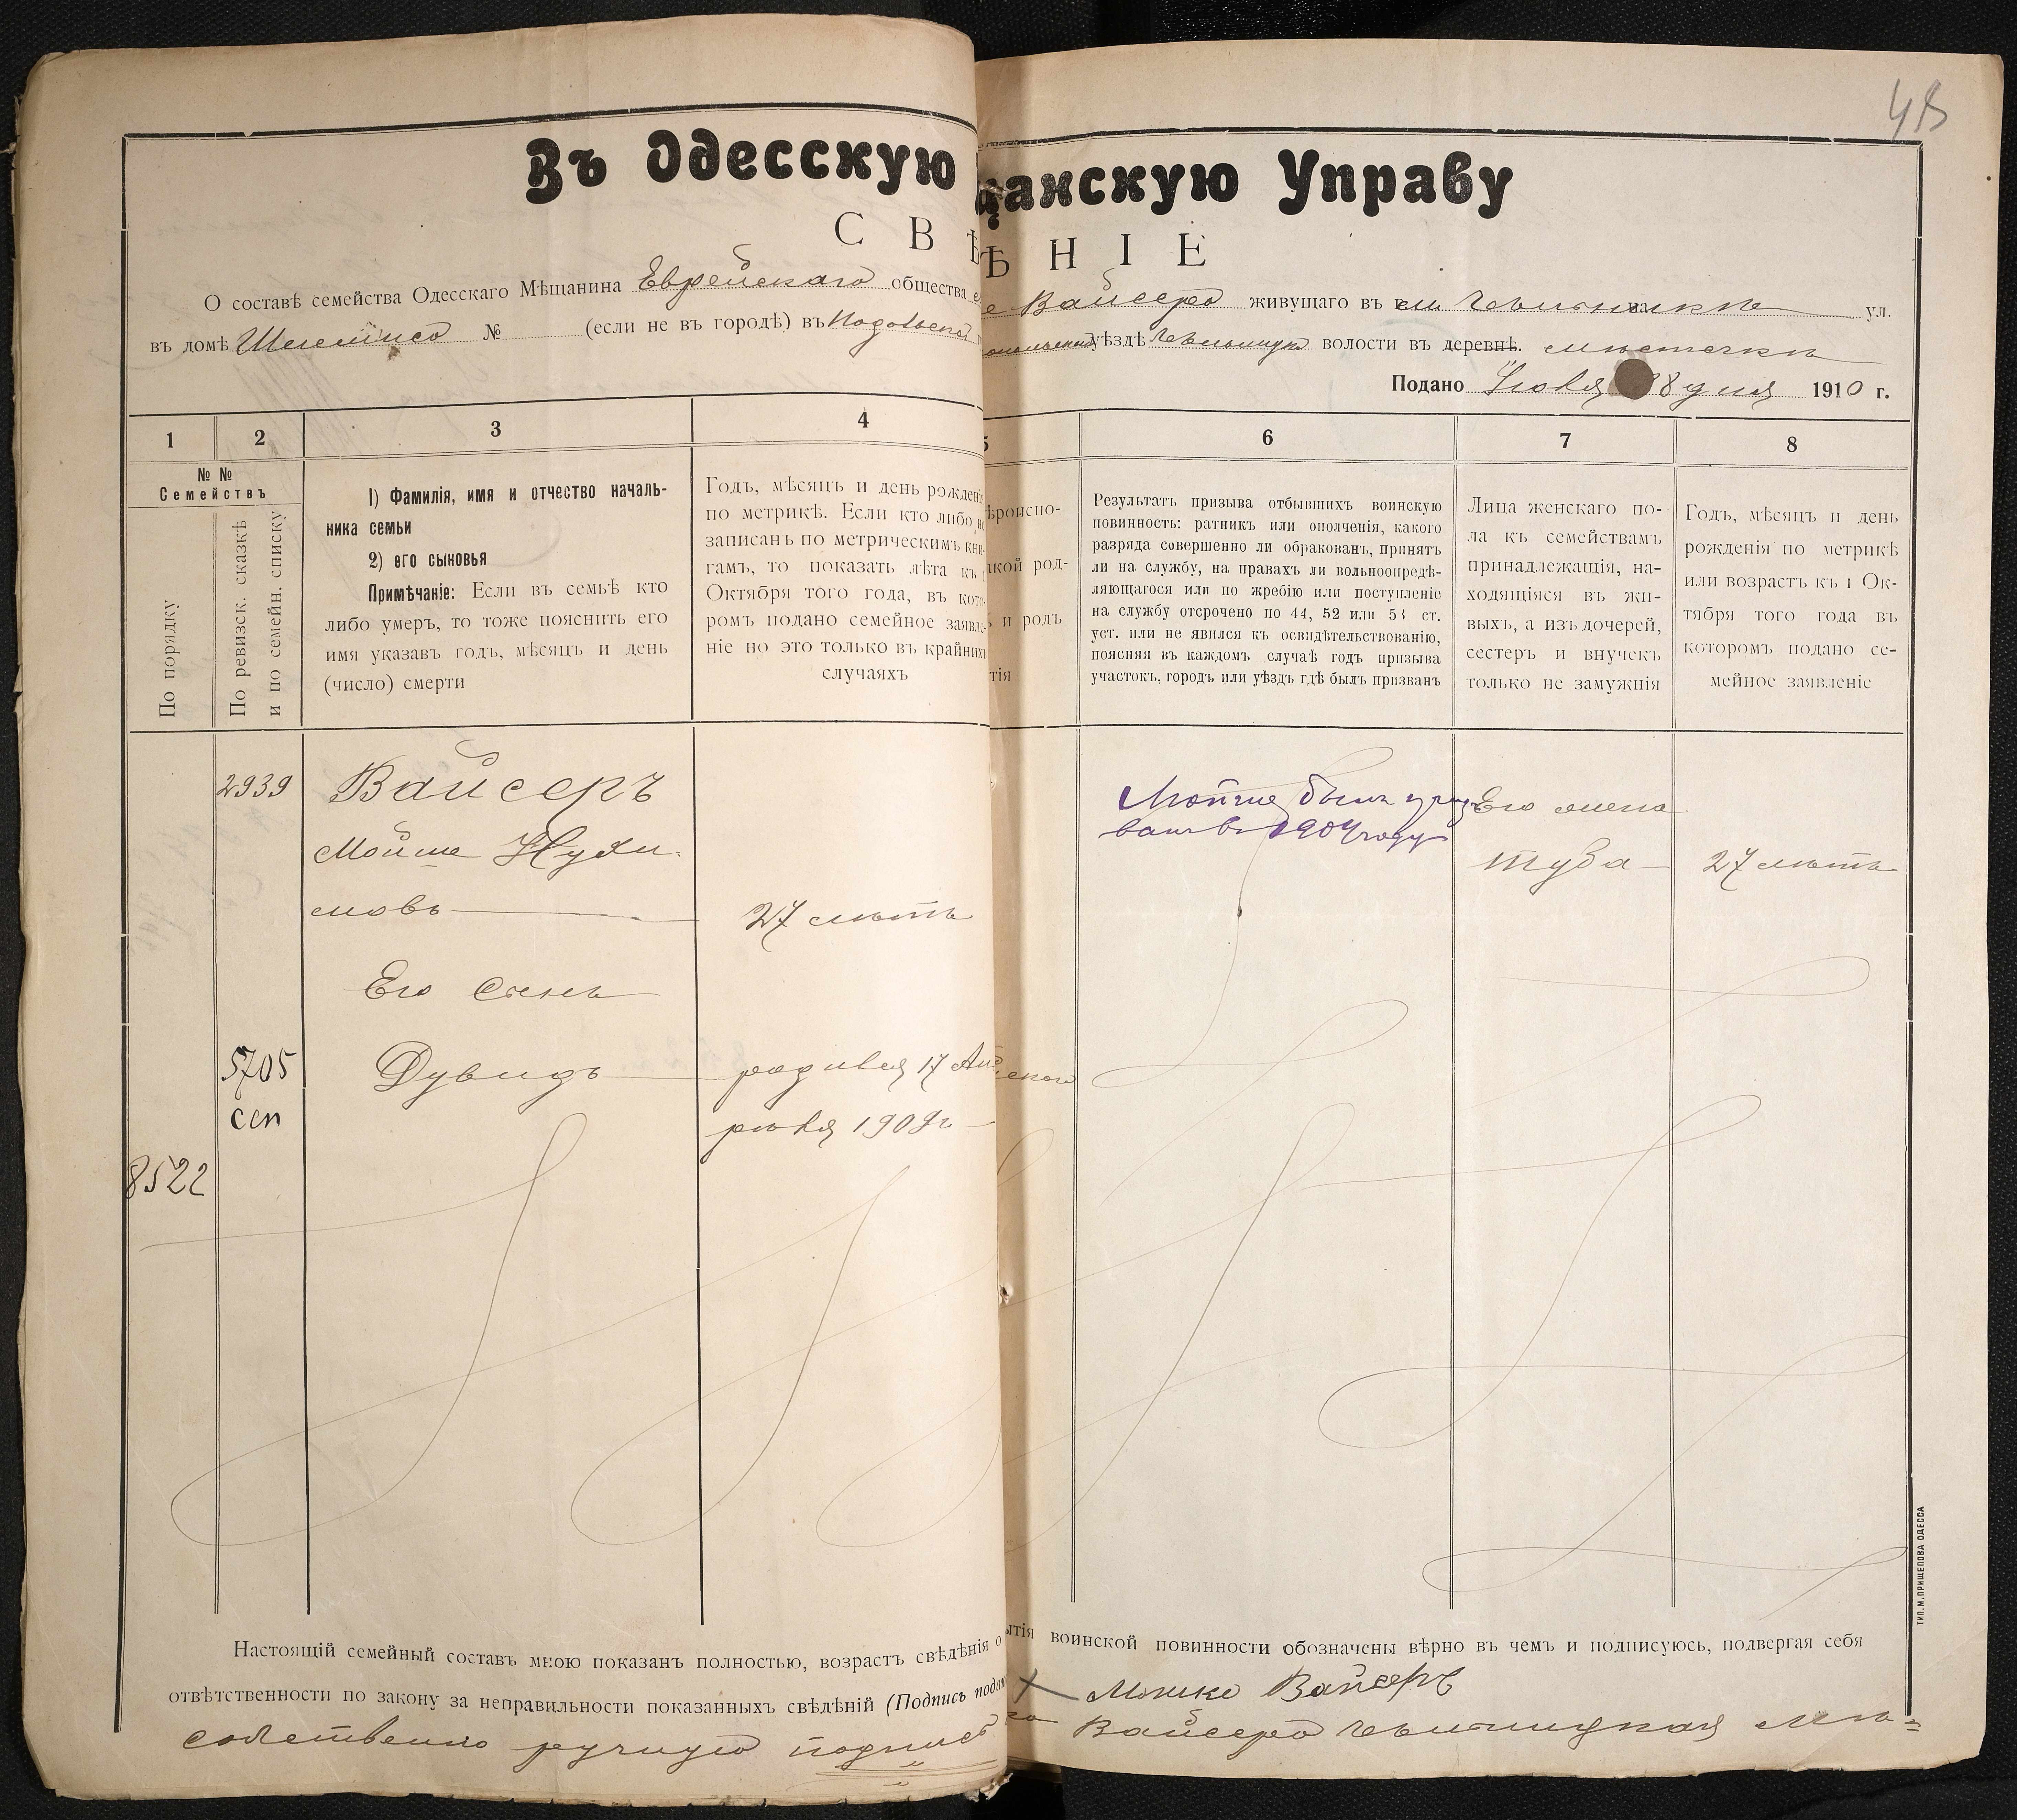 48
Въ Одесскую щанскую Управу
С В Ѣ Н І Е
О составѣ семейства Одесскаго Мѣщанина Еврейскаго общества Вайсера живущаго въ ул.
въ домѣ № (если не въ городѣ) въ Подольской уѣздѣ волости въ деревнѣ. мѣстечкѣ
Подано Іюля 8 дня 1910 г.
1 2 3 4 5 6 7 8
№ №
Семействъ
По порядку
По ревизск. сказкѣ
и по семейн. списку
1) Фамилія, имя и отчество началь-
ника семьи
2) его сыновья
Примѣчаніе: Если въ семьѣ кто
либо умеръ, то тоже пояснить его
имя указавъ годъ, мѣсяцъ и день
(число) смерти
Годъ, мѣсяцъ и день рожденія
по метрикѣ. Если кто либо не
записанъ по метрическимъ кни-
гамъ, то показать лѣта къ 1
Октября того года, въ кото-
ромъ подано семейное заявле-
ніе но это только въ крайнихъ
случаяхъ
ѣроиспо-
акой род-
и родъ
тія
Результатъ призыва отбывшихъ воинскую
повинность: ратникъ или ополченія, какого
разряда совершенно ли обракованъ, принятъ
ли на службу, на правахъ ли вольноопредѣ-
ляющагося или по жребію или поступленіе
на службу отсрочено по 44, 52 или 53 ст.
уст. или не явился къ освидѣтельствованію,
поясняя въ каждомъ случаѣ годъ призыва
участокъ, городъ или уѣздъ гдѣ былъ призванъ
Лица женскаго по-
ла къ семействамъ
принадлежащія, на-
ходящіяся въ жи-
выхъ, а изъ дочерей,
сестеръ и внучекъ
только не замужнія
Годъ, мѣсяцъ и день
рожденія по метрикѣ
или возрастъ къ 1 Ок-
тября того года въ
которомъ подано се-
мейное заявленіе
2939 Вайсеръ
Мойше Нухи-
мовъ 27 лѣтъ
Мойше былъ приз
ванъ въ 1904 году
Его жена
Туба 27 лѣтъ
Его сынъ
5705 Дувидъ родився 17 Ап
сем рѣля 1909 г
8522
Настоящій семейный составъ мною показанъ полностью, возрастъ свѣдѣнія о ытія воинской повинности обозначены вѣрно въ чемъ и подписуюсь, подвергая себя
отвѣтственности по закону за неправильности показанныхъ свѣдѣній (Подпись подав Мошко Вайсеръ
собственно ручную подпись Вайсера Хмельницкая Мѣ=
ТИП. М. ПРИЩЕПОВА ОДЕССА